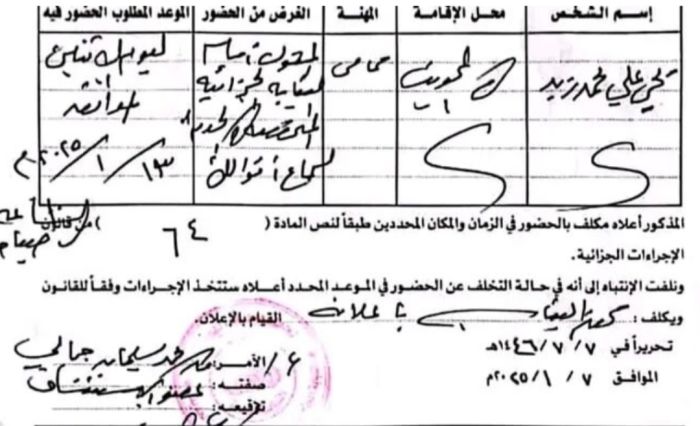 إسم الشخص محل الإقامة المهنة الغرض من الحضور الموعد المطلوب الحضور فيه
علي محمد زيد المحويت محامي المثول أمام النيابة الجزائية المتخصصة لسماع أقوالك ليوم الاثنين الموافق ١٣ / ١ / ٢٠٢٥م
المذكور أعلاه مكلف بالحضور في الزمان والمكان المحددين طبقاً لنص المادة ( ٦٤ ) من قانون
الإجراءات الجزائية.
ونلفت الإنتباه إلى أنه في حالة التخلف عن الحضور في الموعد المحدد أعلاه ستتخذ الإجراءات وفقاً للقانون
ويكلف : بإعلانه القيام بالإعلان.
تحريراً في ٧ / ٧ / ١٤٤٦هـ
الموافق ٧ / ١ / ٢٠٢٥م
الأمر: محمد سليمان جمالي
صفته: عضو الاستئناف
توقيعه: